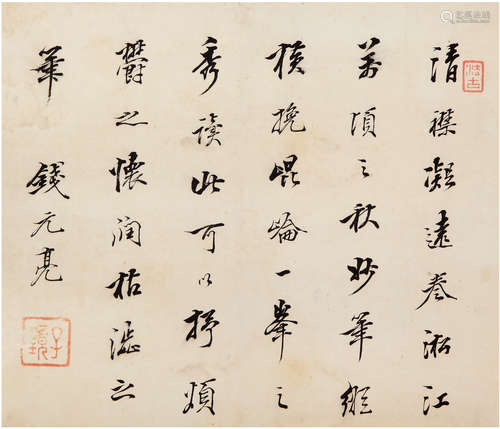 清襟凝遠卷淞江
萬頃之秋妙筆縱
橫挽崑崙一峯之
秀讀此可以抒煩
鬱之懷潤枯澁之
筆
錢元亮